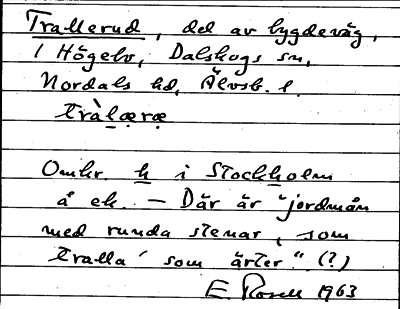 Trallerud, del av bygdeväg,
i Högelv, Dalskogs sn,
Nordals hd, Älvsb. l.
tràlæræ
Omkr k i Stockholm
å ek. – Där är "jordmån
med runda stenar, som
'tralla' som ärter" (?)
E. Rosell 1963